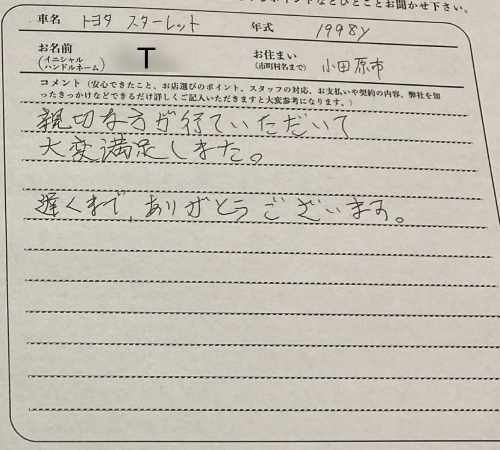 ポイントなどひとことお聞かせ下さい。
車名 トヨタ スターレット 年式 1998y
お名前 (イニシャル ハンドルネーム) T お住まい (市町村名まで) 小田原市
コメント（安心できたこと、お店選びのポイント、スタッフの対応、お支払いや契約の内容、弊社を知
ったきっかけなどできるだけ詳しくご記入いただきますと大変参考になります。）
親切な方が行ていただいて
大変満足しました。
遅くまで、ありがとうございます。